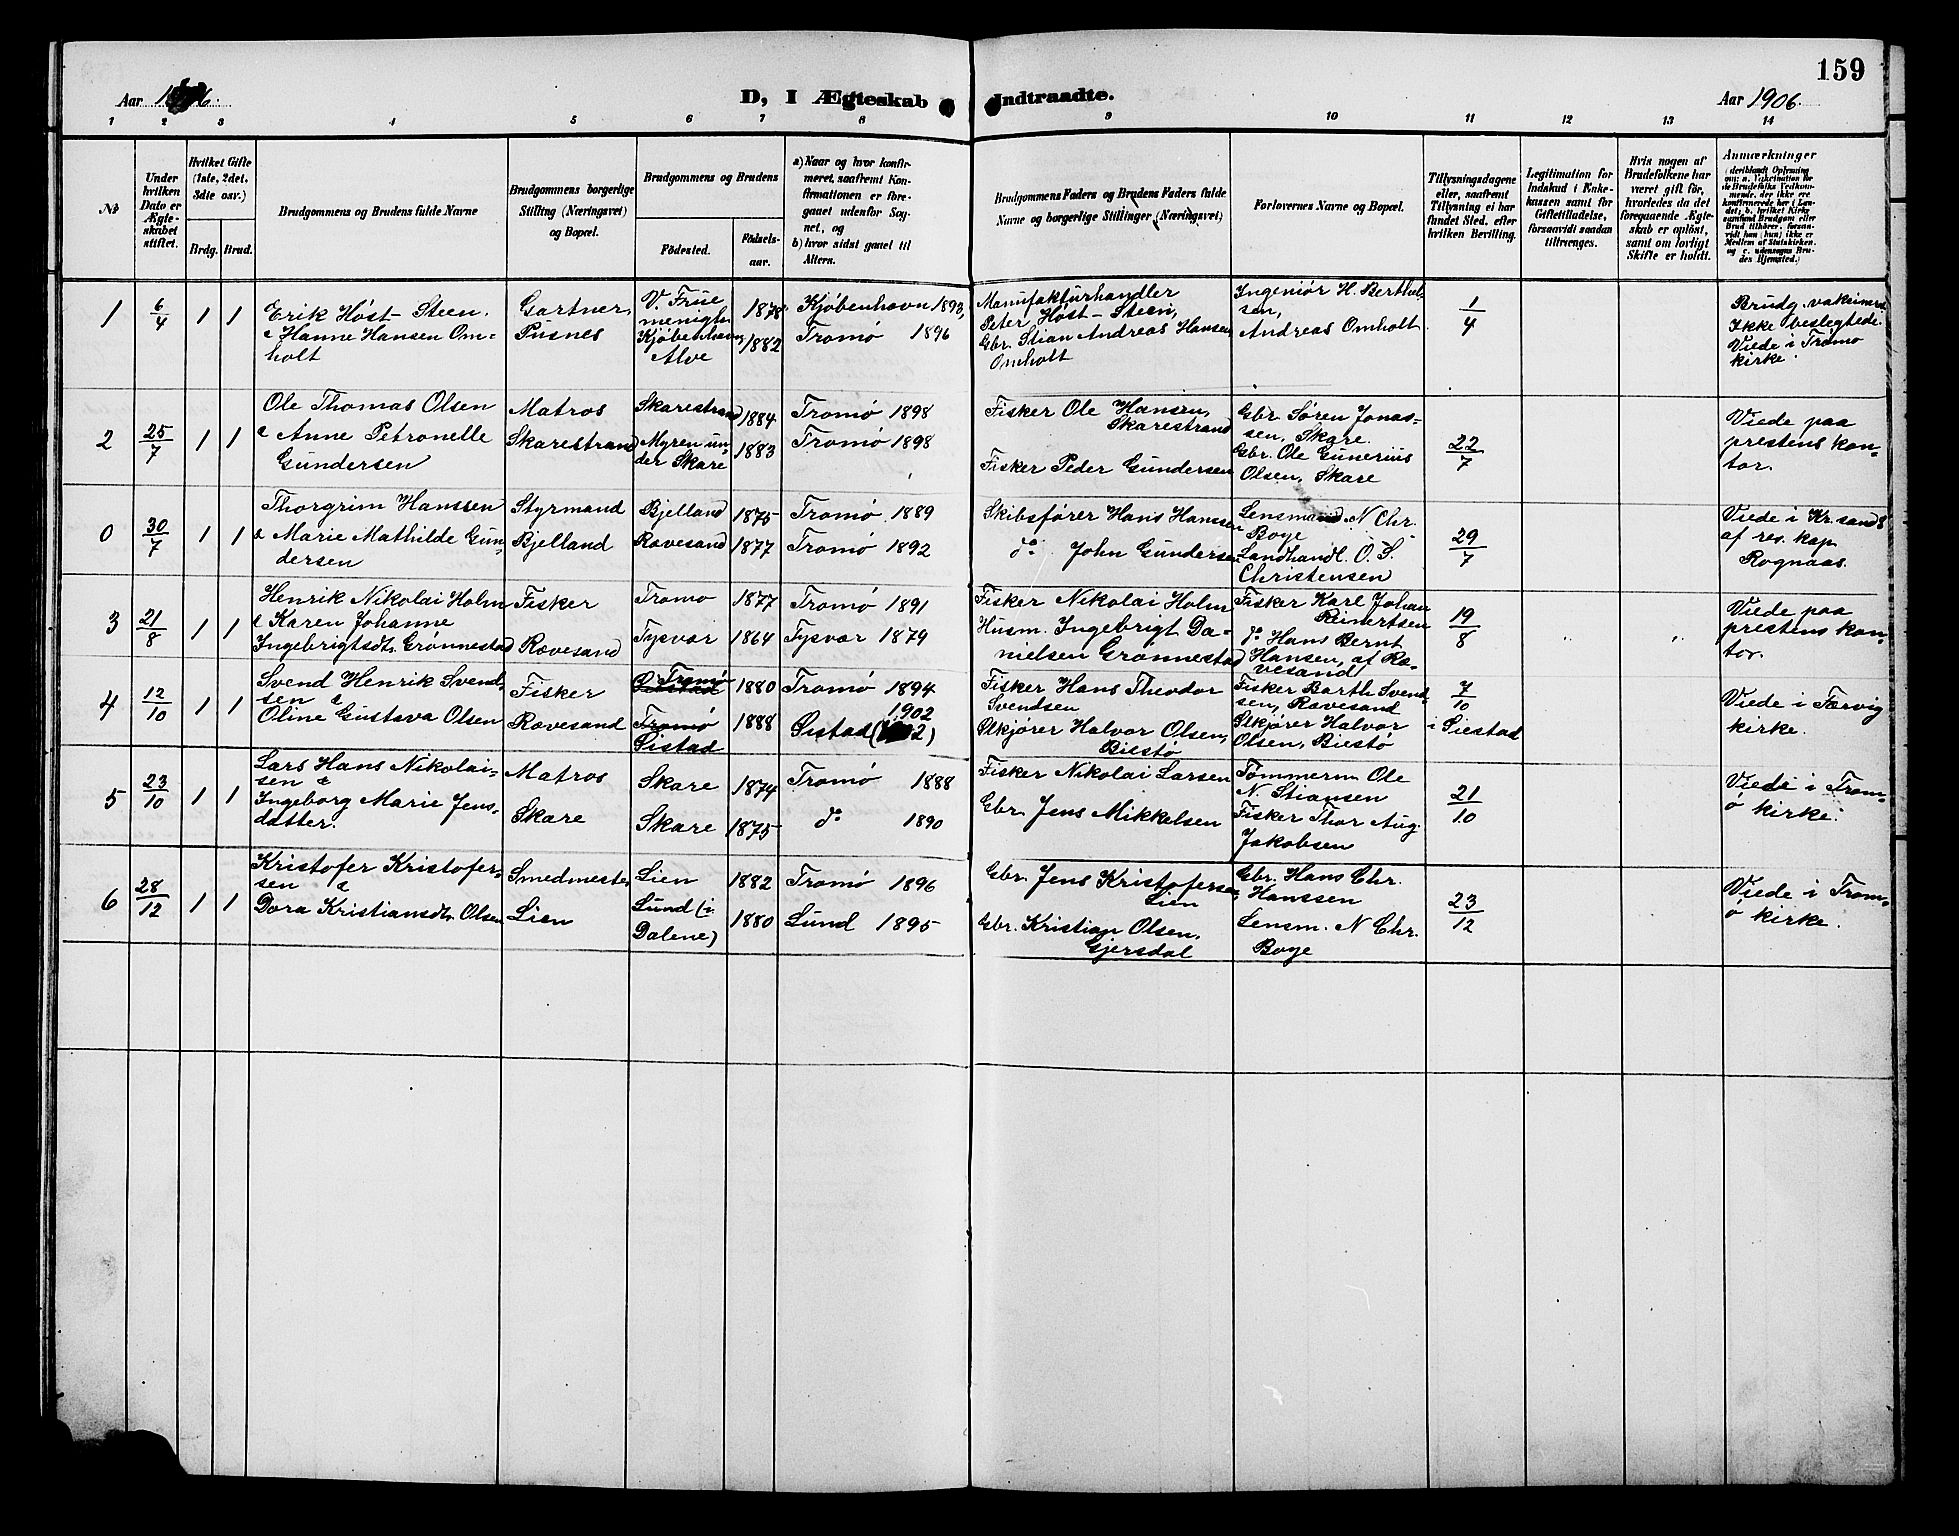 159
Aar 1906.
D, I Ægteskab Indtraadte.
Aar 1906.
1 2 3 4 5 6 7 8 9 10 11 12 13 14
№
Under hvilken Dato er Ægteskabet stiftet.
Hvilket Gifte (1ste, 2det, 3die osv.)
Brdg. Brud.
Brudgommens og Brudens fulde Navne
Brudgommens borgerlige Stilling (Næringsvei) og Bopæl.
Brudgommens og Brudens
Fødested.
Fødselsaar.
a) Naar og hvor konfirmeret, saafremt Konfirmationen er foregaaet udenfor Sognet, og
b) hvor sidst gaaet til Alters.
Brudgommens Faders og Brudens Faders fulde Navne og borgerlige Stillinger (Næringsvei)
Forlovernes Navne og Bopæl.
Tillysningsdagene eller, saafremt Tillysning ei har fundet Sted, efter hvilken Bevilling.
Legitimation for Indskud i Enkekassen samt for Giftetilladelse, forsaavidt saadan tiltrænges.
Hvis nogen af Brudefolkene har været gift før, hvorledes da det foregaaende Ægteskab er opløst, samt om lovligt Skifte er holdt.
Anmærkninger
(deriblandt Oplysning om: a. Vakcination for de Brudefolks Vedkommende, der ikke ere konfirmerede her i Landet, b. hvilket Kirkesamfund Brudgom eller Brud tilhører, forsaavidt han (hun) ikke er Medlem af Statskirken, og c. udensogns Brudes Hjemsted.)
1 6/4 1 1
Erik Høst-Steen.
& Hanne Hansen Om-
holt
Gartner,
Pusnes
V. Frue
menigh.
Kjøbenhavn
Alve
1878
1882
Kjøbenhavn 1893,
Tromø 1896
Manufakturhandler
Peter Høst-Steen,
Gbr. Stian Andreas Hansen
Omholt
Ingeniør H. Berthel-
sen,
Andreas Omholt
1/4
Brudg. vaksineret.
Ikke beslegtede.
Viede i Tromø
kirke.
2 25/7 1 1
Ole Thomas Olsen
& Anne Petronelle
Gundersen
Matros
Skarestrand
Skarestrand
Myren un-
der Skare
1884
1883
Tromø 1898
Tromø 1898
Fisker Ole Hansen,
Skarestrand
Fisker Peder Gundersen
Gbr. Søren Jonas-
sen, Skare.
Gbr. Ole Gunerius
Olsen, Skare
22/7
Viede paa
prestens kon-
tor.
0 30/7 1 1
Thorgrim Hanssen
& Marie Mathilde Gun-
dersen
Styrmand
Bjelland
Bjelland
Rævesand
1875
1877
Tromø 1889
Tromø 1892
Skibsfører Hans Hanssen
do John Gundersen
Lensmand N Chr.
Boye
Landhandl. O. S.
Christensen
29/7
Viede i Kr.sand S
af res. kap.
Rognaas.
3 21/8 1 1
Henrik Nikolai Holm
& Karen Johanne
Ingebrigtsdt. Grønnestad
Fisker
Rævesand
Tromø
Tysvær
1877
1864
Tromø 1891
Tysvær 1879
Fisker Nikolai Holm
Husm. Ingebrigt Da-
nielsen Grønnestad
Fisker Karl Johan
Reinertsen
do Hans Bernt
Hansen, af Ræ-
vesand
19/8
Viede paa
prestens kon-
tor.
4 12/10 1 1
Svend Henrik Svend-
sen &
Oline Gustava Olsen
Fisker
Rævesand
Tromø
Tromø
Øistad
1880
1888
Tromø 1894
1902
Øistad (1902)
Fisker Hans Theodor
Svendsen
Ølkjører Halvor Olsen,
Biestø
Fisker Barth. Svend-
sen, Rævesand
Ølkjører Halvor
Olsen, Biestø
7/10
i Øiestad
Viede i Færvig
kirke.
5 23/10 1 1
Lars Hans Nikolai-
sen &
Ingeborg Marie Jens-
datter.
Matros
Skare
Skare
Skare
1874
1875
Tromø 1888
do 1890
Fisker Nikolai Larsen
Gbr. Jens Mikkelsen
Tømmerm. Ole
N. Stiansen
Fisker Thor Aug.
Jakobsen
21/10
Viede i Trom-
ø kirke.
6 28/12 1 1
Kristofer Kristofer-
sen &
Dora Kristiansdt. Olsen
Smedmester
Lien
Lien
Lund (i
Dalene)
1882
1880
Tromø 1896
Lund 1895
Gbr. Jens Kristofersen
Lien
Gbr. Kristian Olsen,
Gjersdal
Gbr. Hans Chr.
Hanssen
Lensm. N Chr.
Boye
23/12
Viede i Trom-
ø kirke.